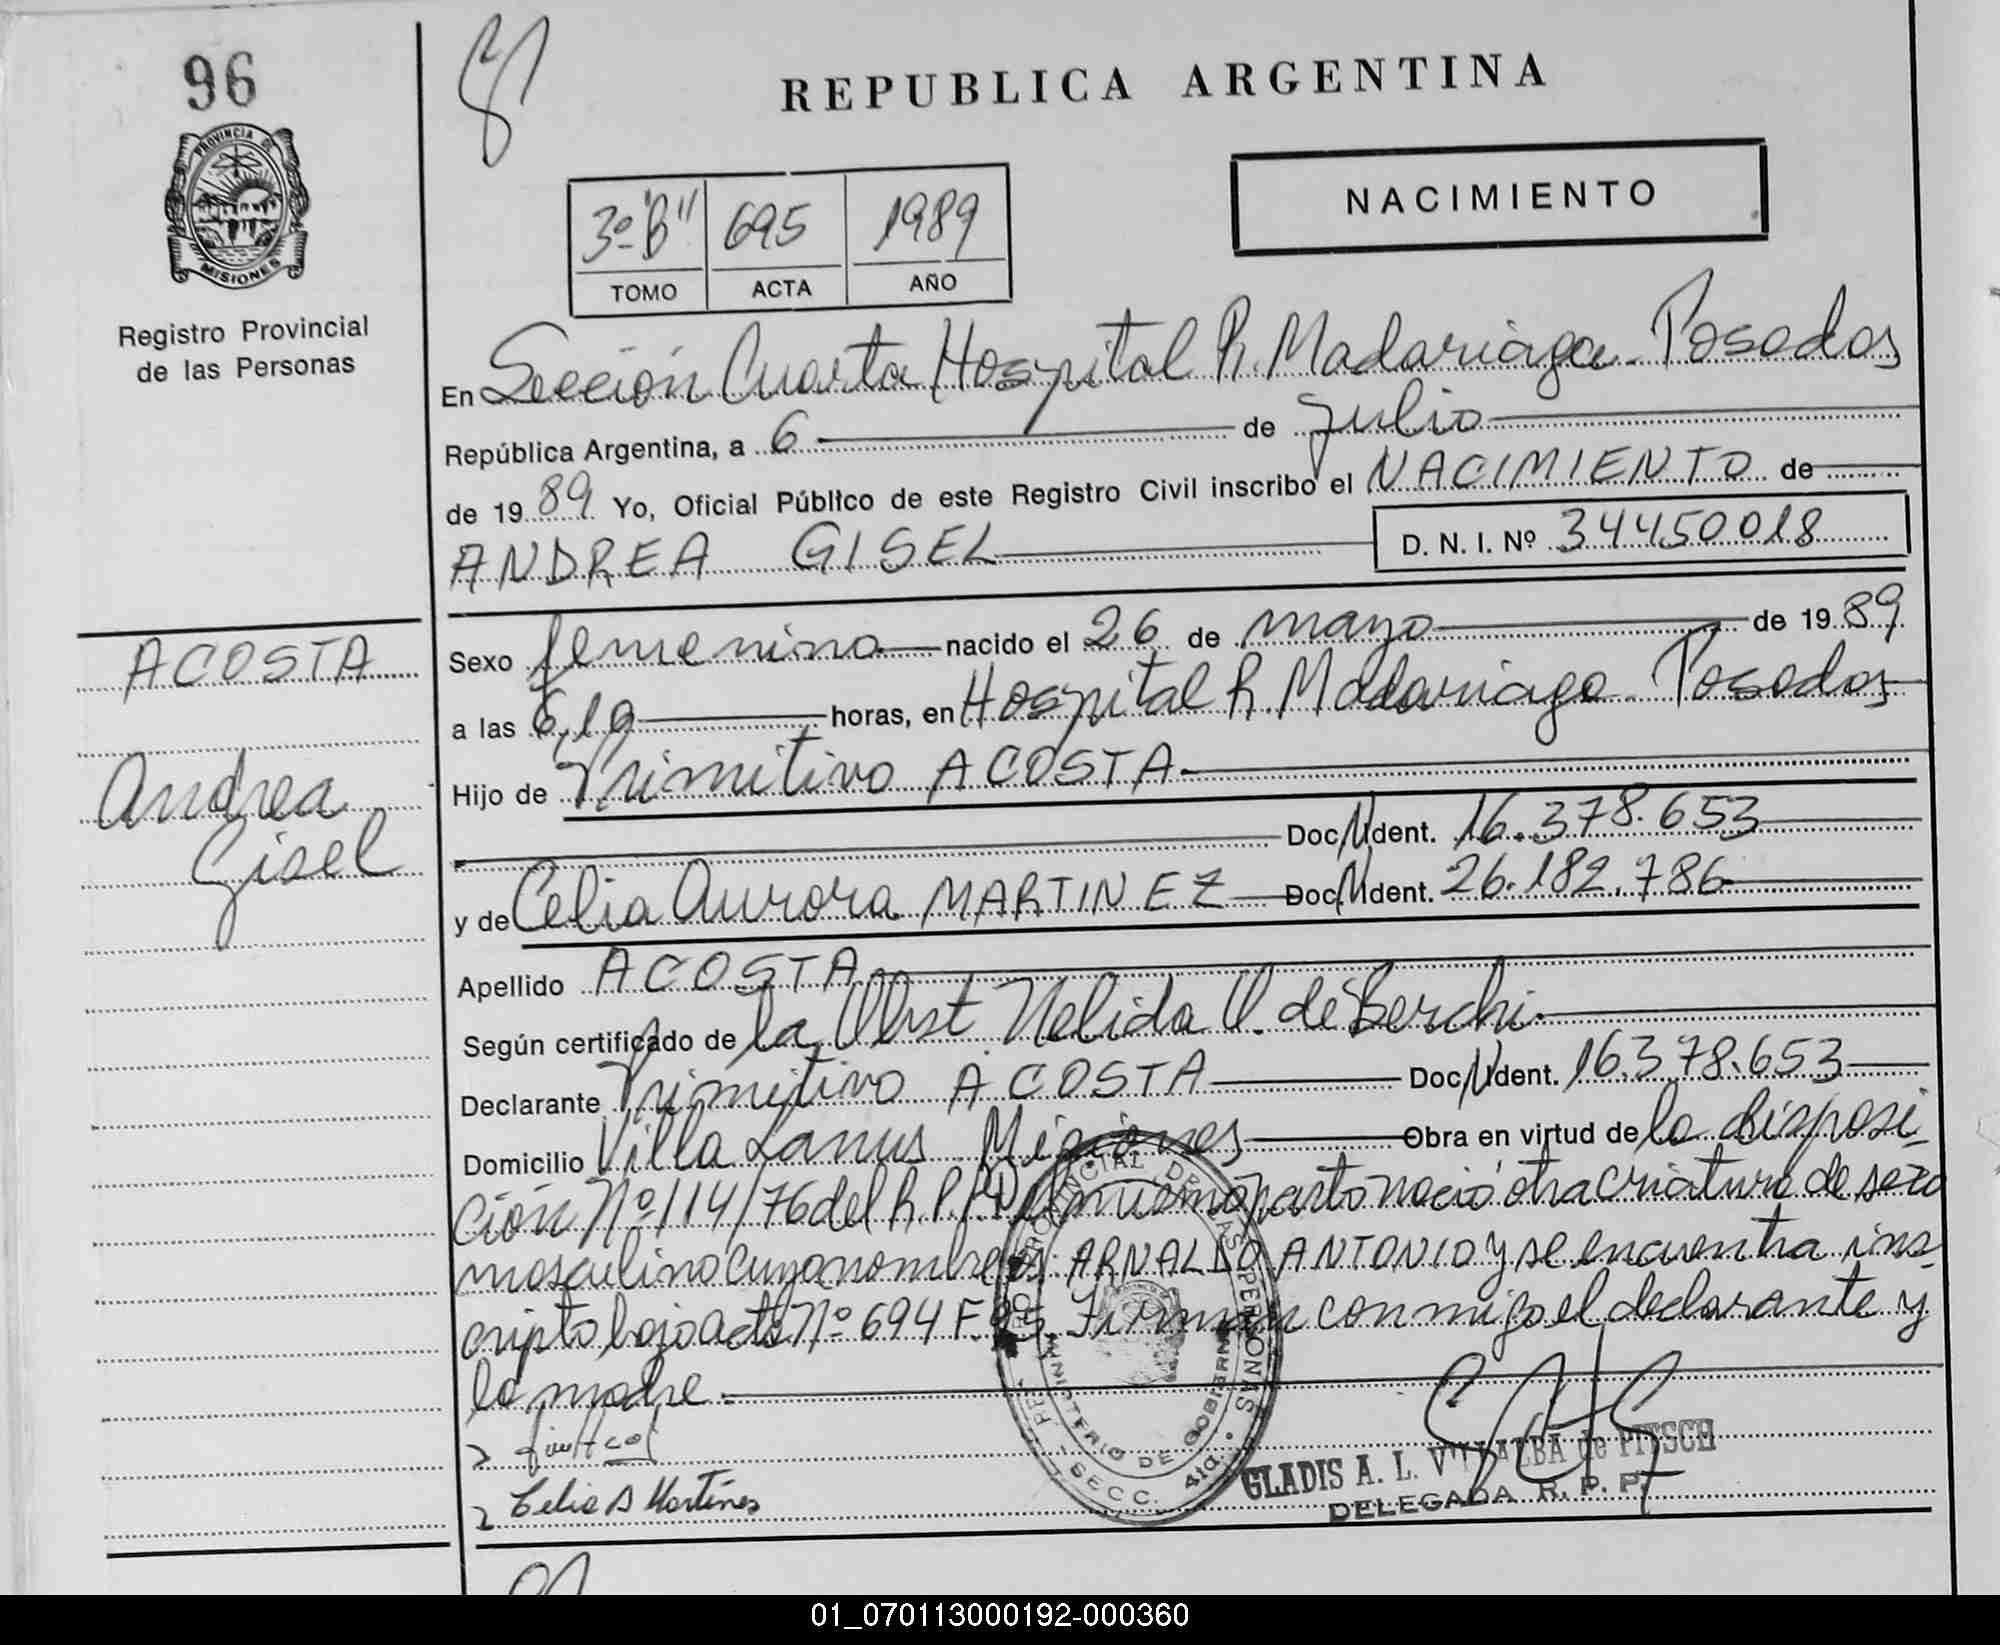 96
PROVINCIA DE
MISIONES
Registro Provincial
de las Personas
REPUBLICA ARGENTINA
NACIMIENTO
3º "B" 695 1989
TOMO ACTA AÑO
En Sección Cuarta Hospital R. Madariaga - Posadas
República Argentina, a 6 de julio
de 1989 Yo, Oficial Público de este Registro Civil inscribo el NACIMIENTO de
ANDREA GISEL D. N. I. Nº 34450018
ACOSTA
Andrea
Gisel
Sexo femenino nacido el 26 de mayo de 1989
a las 6,10 horas, en Hospital R. Madariaga - Posadas
Hijo de Primitivo ACOSTA
Doc. N. Ident. 16.378.653
y de Celia Aurora MARTINEZ Doc. N. Ident. 26.182.786
Apellido ACOSTA
Según certificado de la Obst Nelida V. de Berchi
Declarante Primitivo ACOSTA Doc. N. Ident. 16.378.653
Domicilio Villa Lanus Misiones Obra en virtud de la disposi-
ción Nº 114/76 del R.P.P. Del mismo parto nació otra criatura de sexo
masculino cuyo nombre es ARNALDO ANTONIO y se encuentra ins-
cripto bajo acta Nº 694 F 95. Firman conmigo el declarante y
la madre.
Celia A Martínes
PROVINCIAL DE LAS PERSONAS
MINISTERIO DE GOBIERNO
SECC. 4ta.
GLADIS A. L. VILLALBA de PITSCH
DELEGADA R. P. P.
01_070113000192-000360